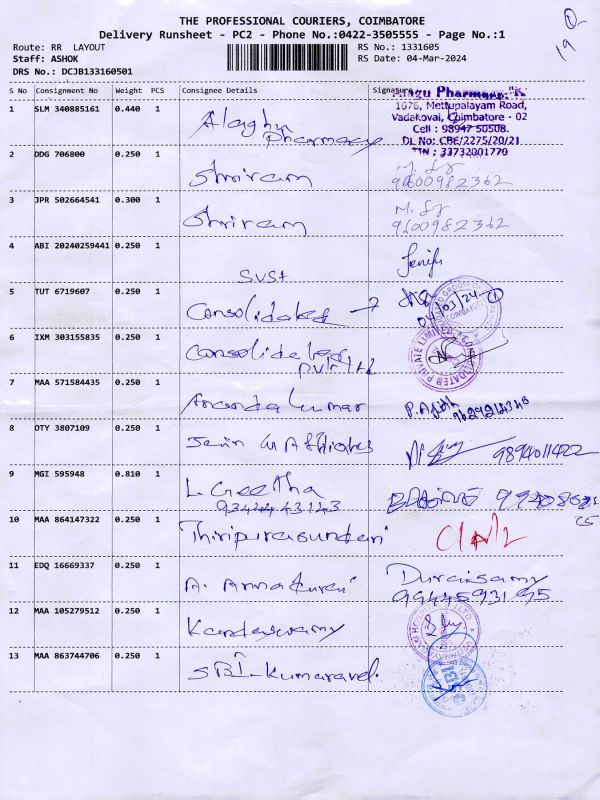 THE PROFESSIONAL COURIERS, COIMBATORE
Delivery Runsheet - PC2 - Phone No.:0422-3505555 - Page No.:1
Route: RR LAYOUT
Staff: ASHOK
DRS No.: DCJB133160501
RS No.: 1331605
RS Date: 04-Mar-2024
19
S No Consignment No Weight PCS Consignee Details Signature
Alagu Pharmacy
1076, Mettupalayam Road,
Vadakovai, Coimbatore - 02
Cell : 98947 50508.
DL No: CBE/2275/20/21
TIN : 33732001770
1 SLM 340885161 0.440 1 Alaghu Pharmacy
2 DDG 706800 0.250 1 Shriram 9600982362
3 JPR 502664541 0.300 1 Shriram 9600982362
4 ABI 20240259441 0.250 1 SVSA Jenifer
5 TUT 6719607 0.250 1 Consolidated 04/03/24
6 IXM 303155835 0.250 1 Consolidated Pvt Ltd
7 MAA 571584435 0.250 1 Ananda Kumar P. Ajith
8 OTY 3807109 0.250 1 9894011422
9 MGI 595948 0.810 1 L. Geetha
10 MAA 864147322 0.250 1 Thiripurasundari
11 EDQ 16669337 0.250 1 A. Duraisamy
9944593195
12 MAA 105279512 0.250 1 Kandaswamy
13 MAA 863744706 0.250 1 SBI - Kumaravel.
SBI